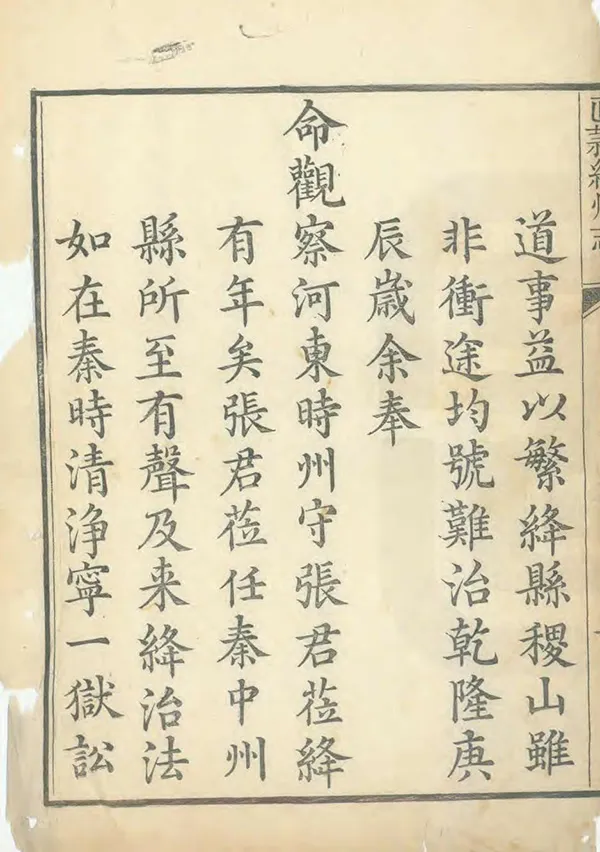 直隸絳州志
道事益以繁絳縣稷山雖
非衝途均號難治乾隆庚
辰歲余奉
命觀察河東時州守張君蒞絳
有年矣張君蒞任秦中州
縣所至有聲及来絳治法
如在秦時清净寧一獄訟